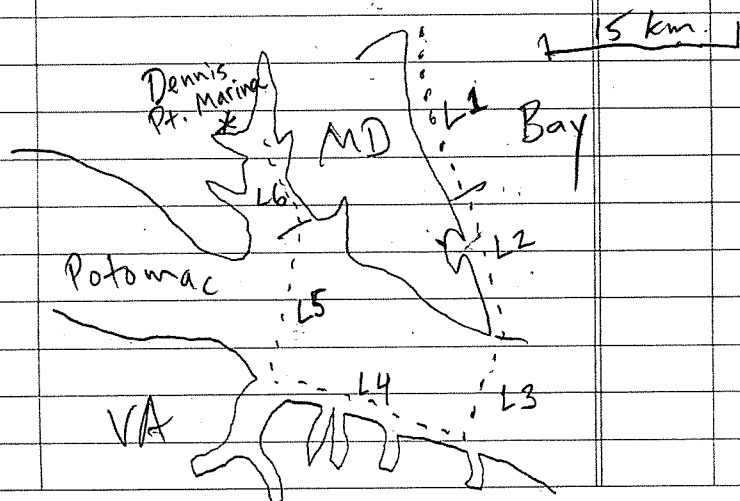 15 km.
Dennis
Pt. Marina
MD
L1
Bay
L6
L2
Potomac
L5
L4
L3
VA